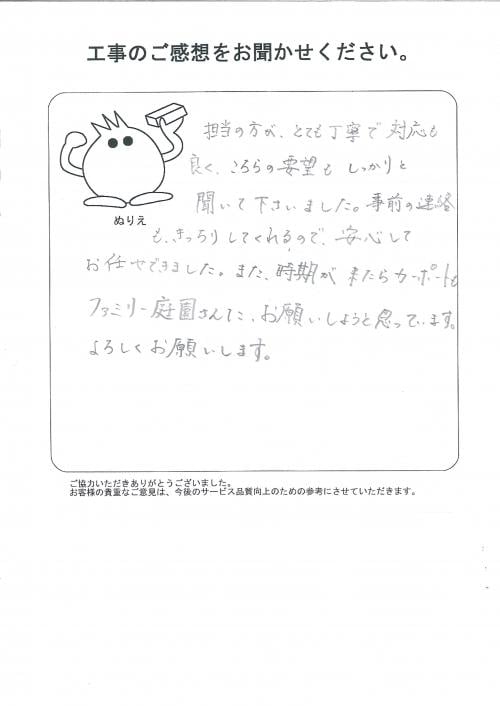 工事のご感想をお聞かせください。
担当の方が、とても丁寧で対応も
良く、こちらの要望もしっかりと
聞いて下さいました。事前の連絡
ぬりえ
も、きっちりしてくれるので、安心して
お任せできました。また、時期が来たらカーポートも
ファミリー庭園さんに、お願いしようと思っています。
よろしくお願いします。
ご協力いただきありがとうございました。
お客様の貴重なご意見は、今後のサービス品質向上のための参考にさせていただきます。